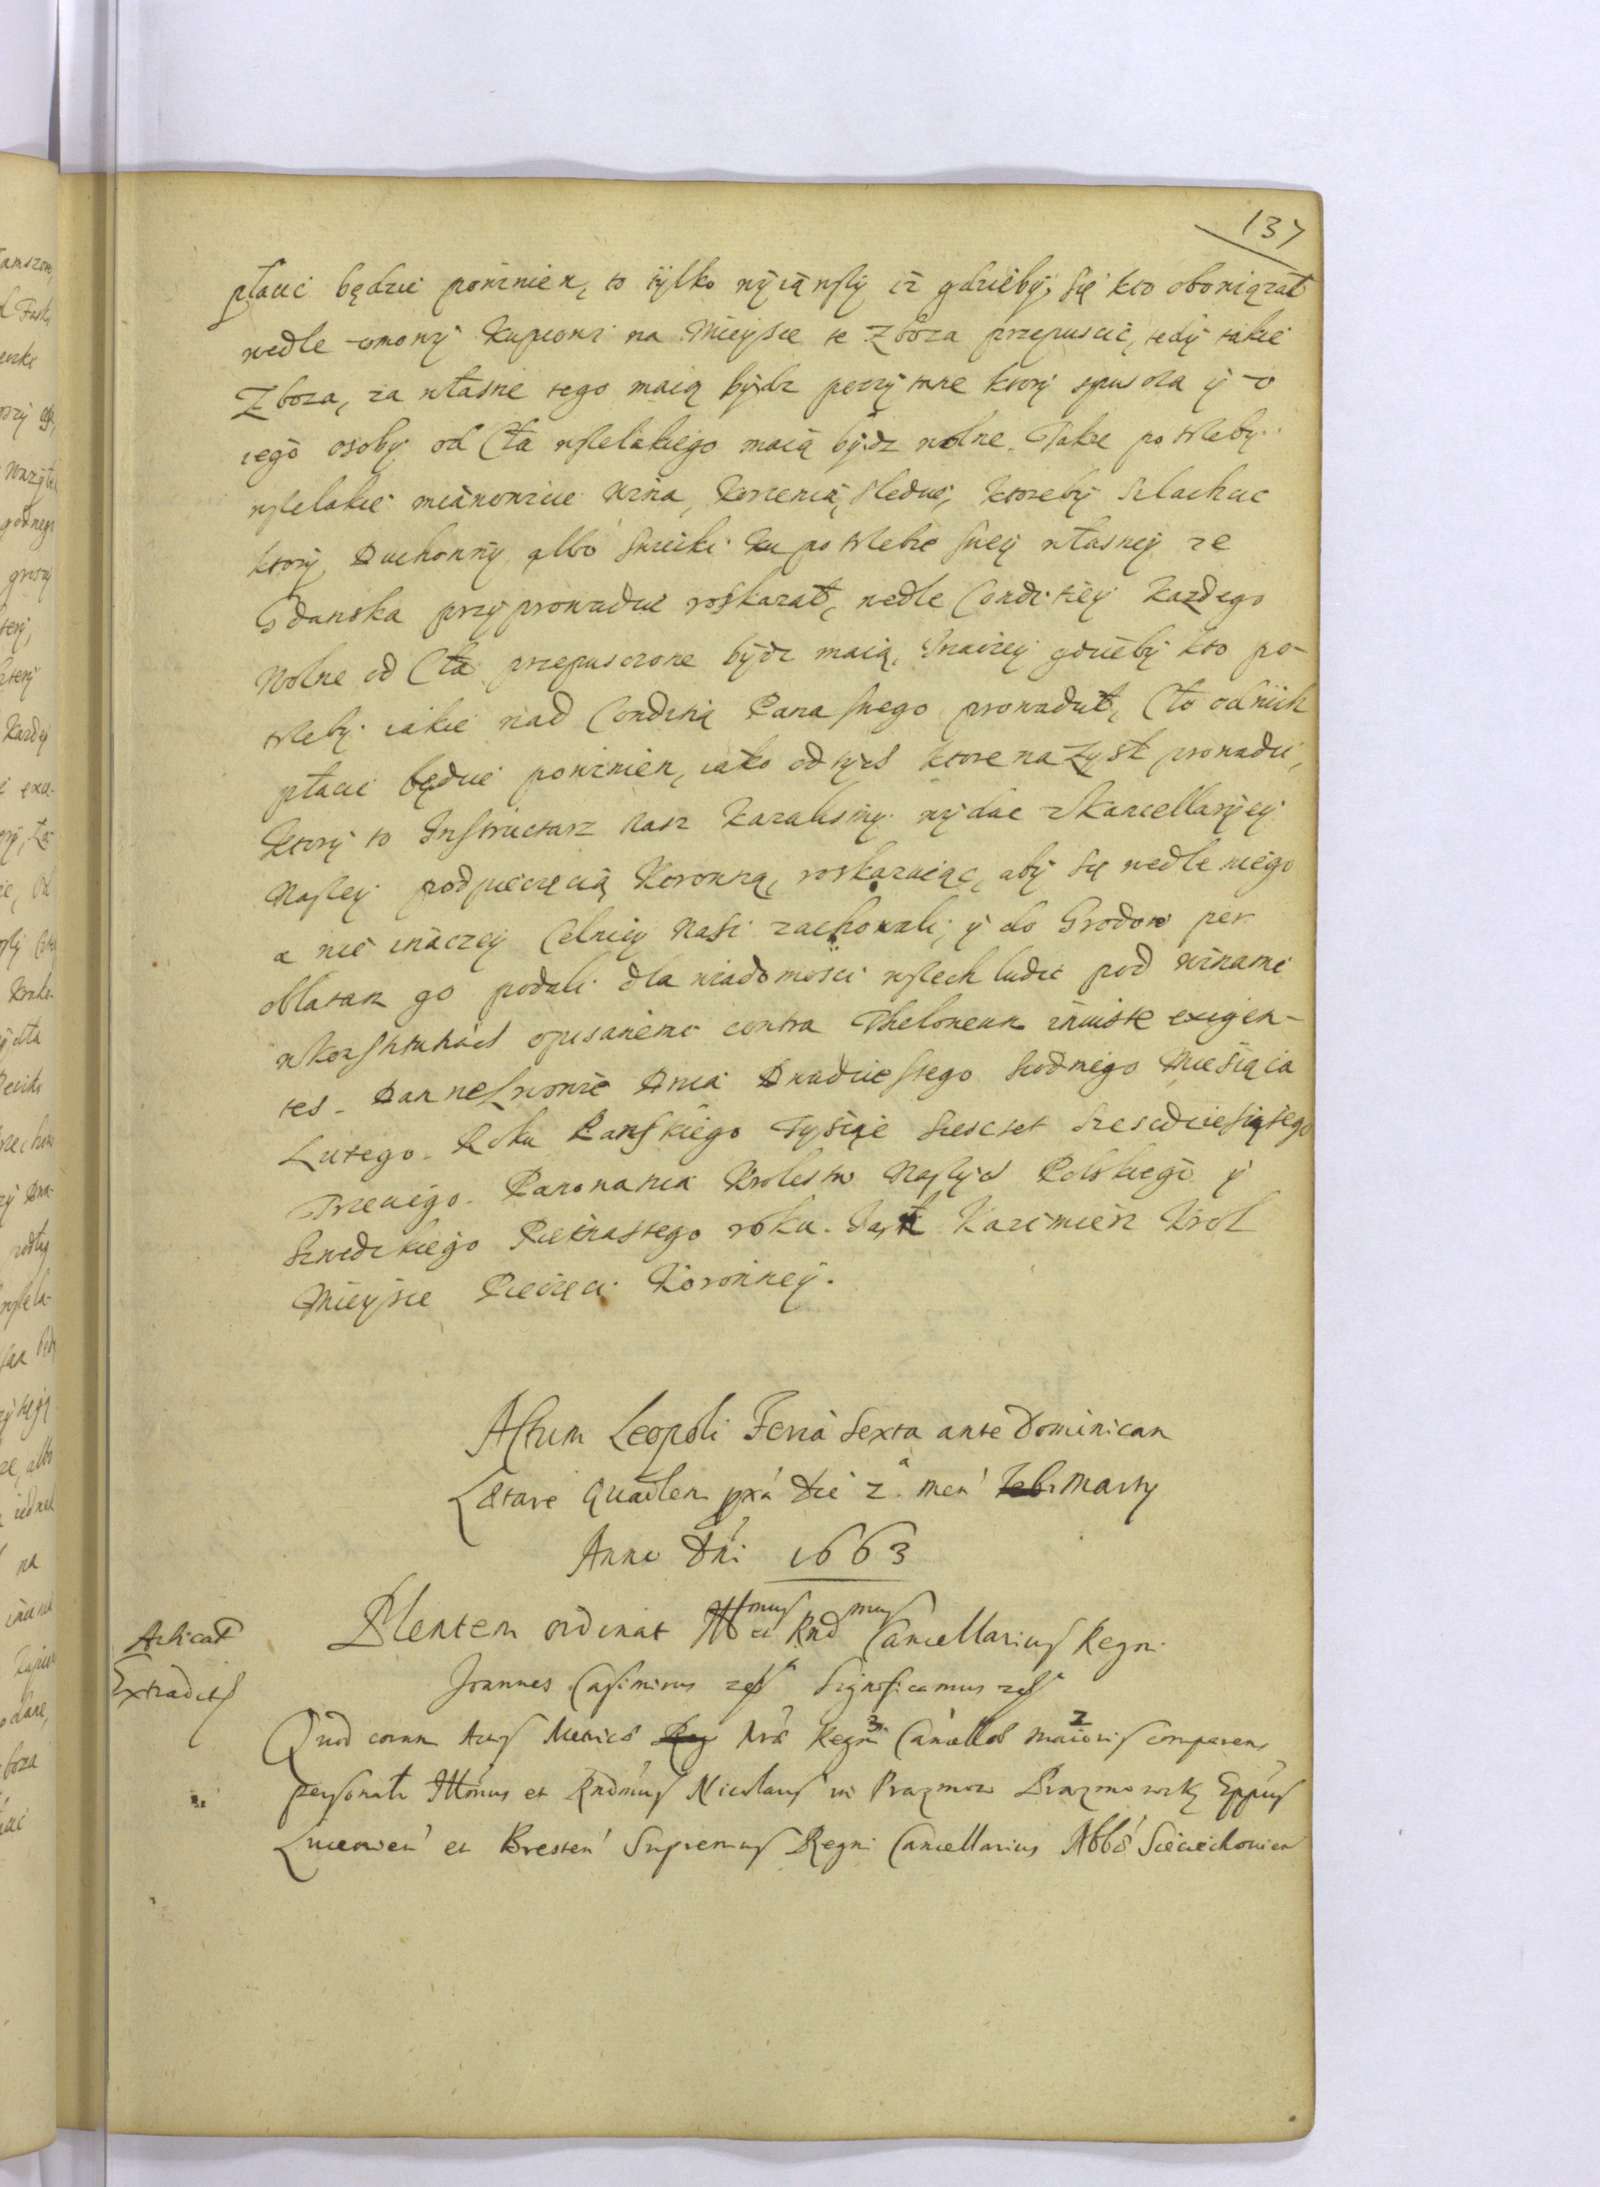 137
płacić będzie powinien, to tylko wyiąwszy iż gdzieby się kto obowiązał
wedle umowy kupcowi na Mieysce te Zboza przepuscic, tedy takie
Zboza, za własne tego maią bydz poczytane ktory spuscza y o
iego osoby od Cła wszelakiego maią bydz wolne. Takze potrzeby
wszelakie mianowicie Wina, korzenia, sledzie, ktoreby Szlachcic
ktory Duchowny albo Swiecki ku potrzebie swey własney ze
Gdanska przyprowadzic roskazał, wedle Conditiey kazdego
Wolne od Cła przepuszczone bydz maią, Inaczey gdzieby kto po-
trzeby iakie nad Conditią Pana swego prowadził, Cło od nich
płacic będzie powinien, iako od tych ktore na Zysk prowadzi,
Ktory to Instructarz nasz kazalismy wydac z Kancellaryiey
Naszey pod pieczęcią Koronną, roskazuiąc, aby się wedle niego
a nie inaczey Celnicy Nasi zachowali, y do Grodow per
oblatam go podali dla wiadomosci wszech ludzi pod winami
w Konstituciach opisanemi contra Theloneum iniuste exigen-
tes. Dan we Lwowie Dnia Dwudziestego siodmego Miesiąca
Lutego. Roku Panskiego Tysiąc szescset szescdziesiątego
Trzeciego. Panowania Krolestw Naszych Polskiego y
Szwedzkiego Piętnastego roku. Jan Kazimierz Krol
Mieysce Pieczęci Koronney.
Actum Leopoli Feria Sexta ante Dominicam
Lætare Quadlem pxa Die 2a men Febr Marty
Anno Dni 1663
Plentem ordinat Illmus et Rndmus Cancellarius Regni
Extradit
Joannes Casimirus Significamus
Quod coram Actis Metrices Reg Nræ Regni 3 Cancellæ maioris 2 comparens
personalr Illmus et Rndmus Nicolaus in Prazmow Prazmowsky Eppus
Luceorien et Bresten Supremus Regni Cancellarius Abbs Sieciechovien